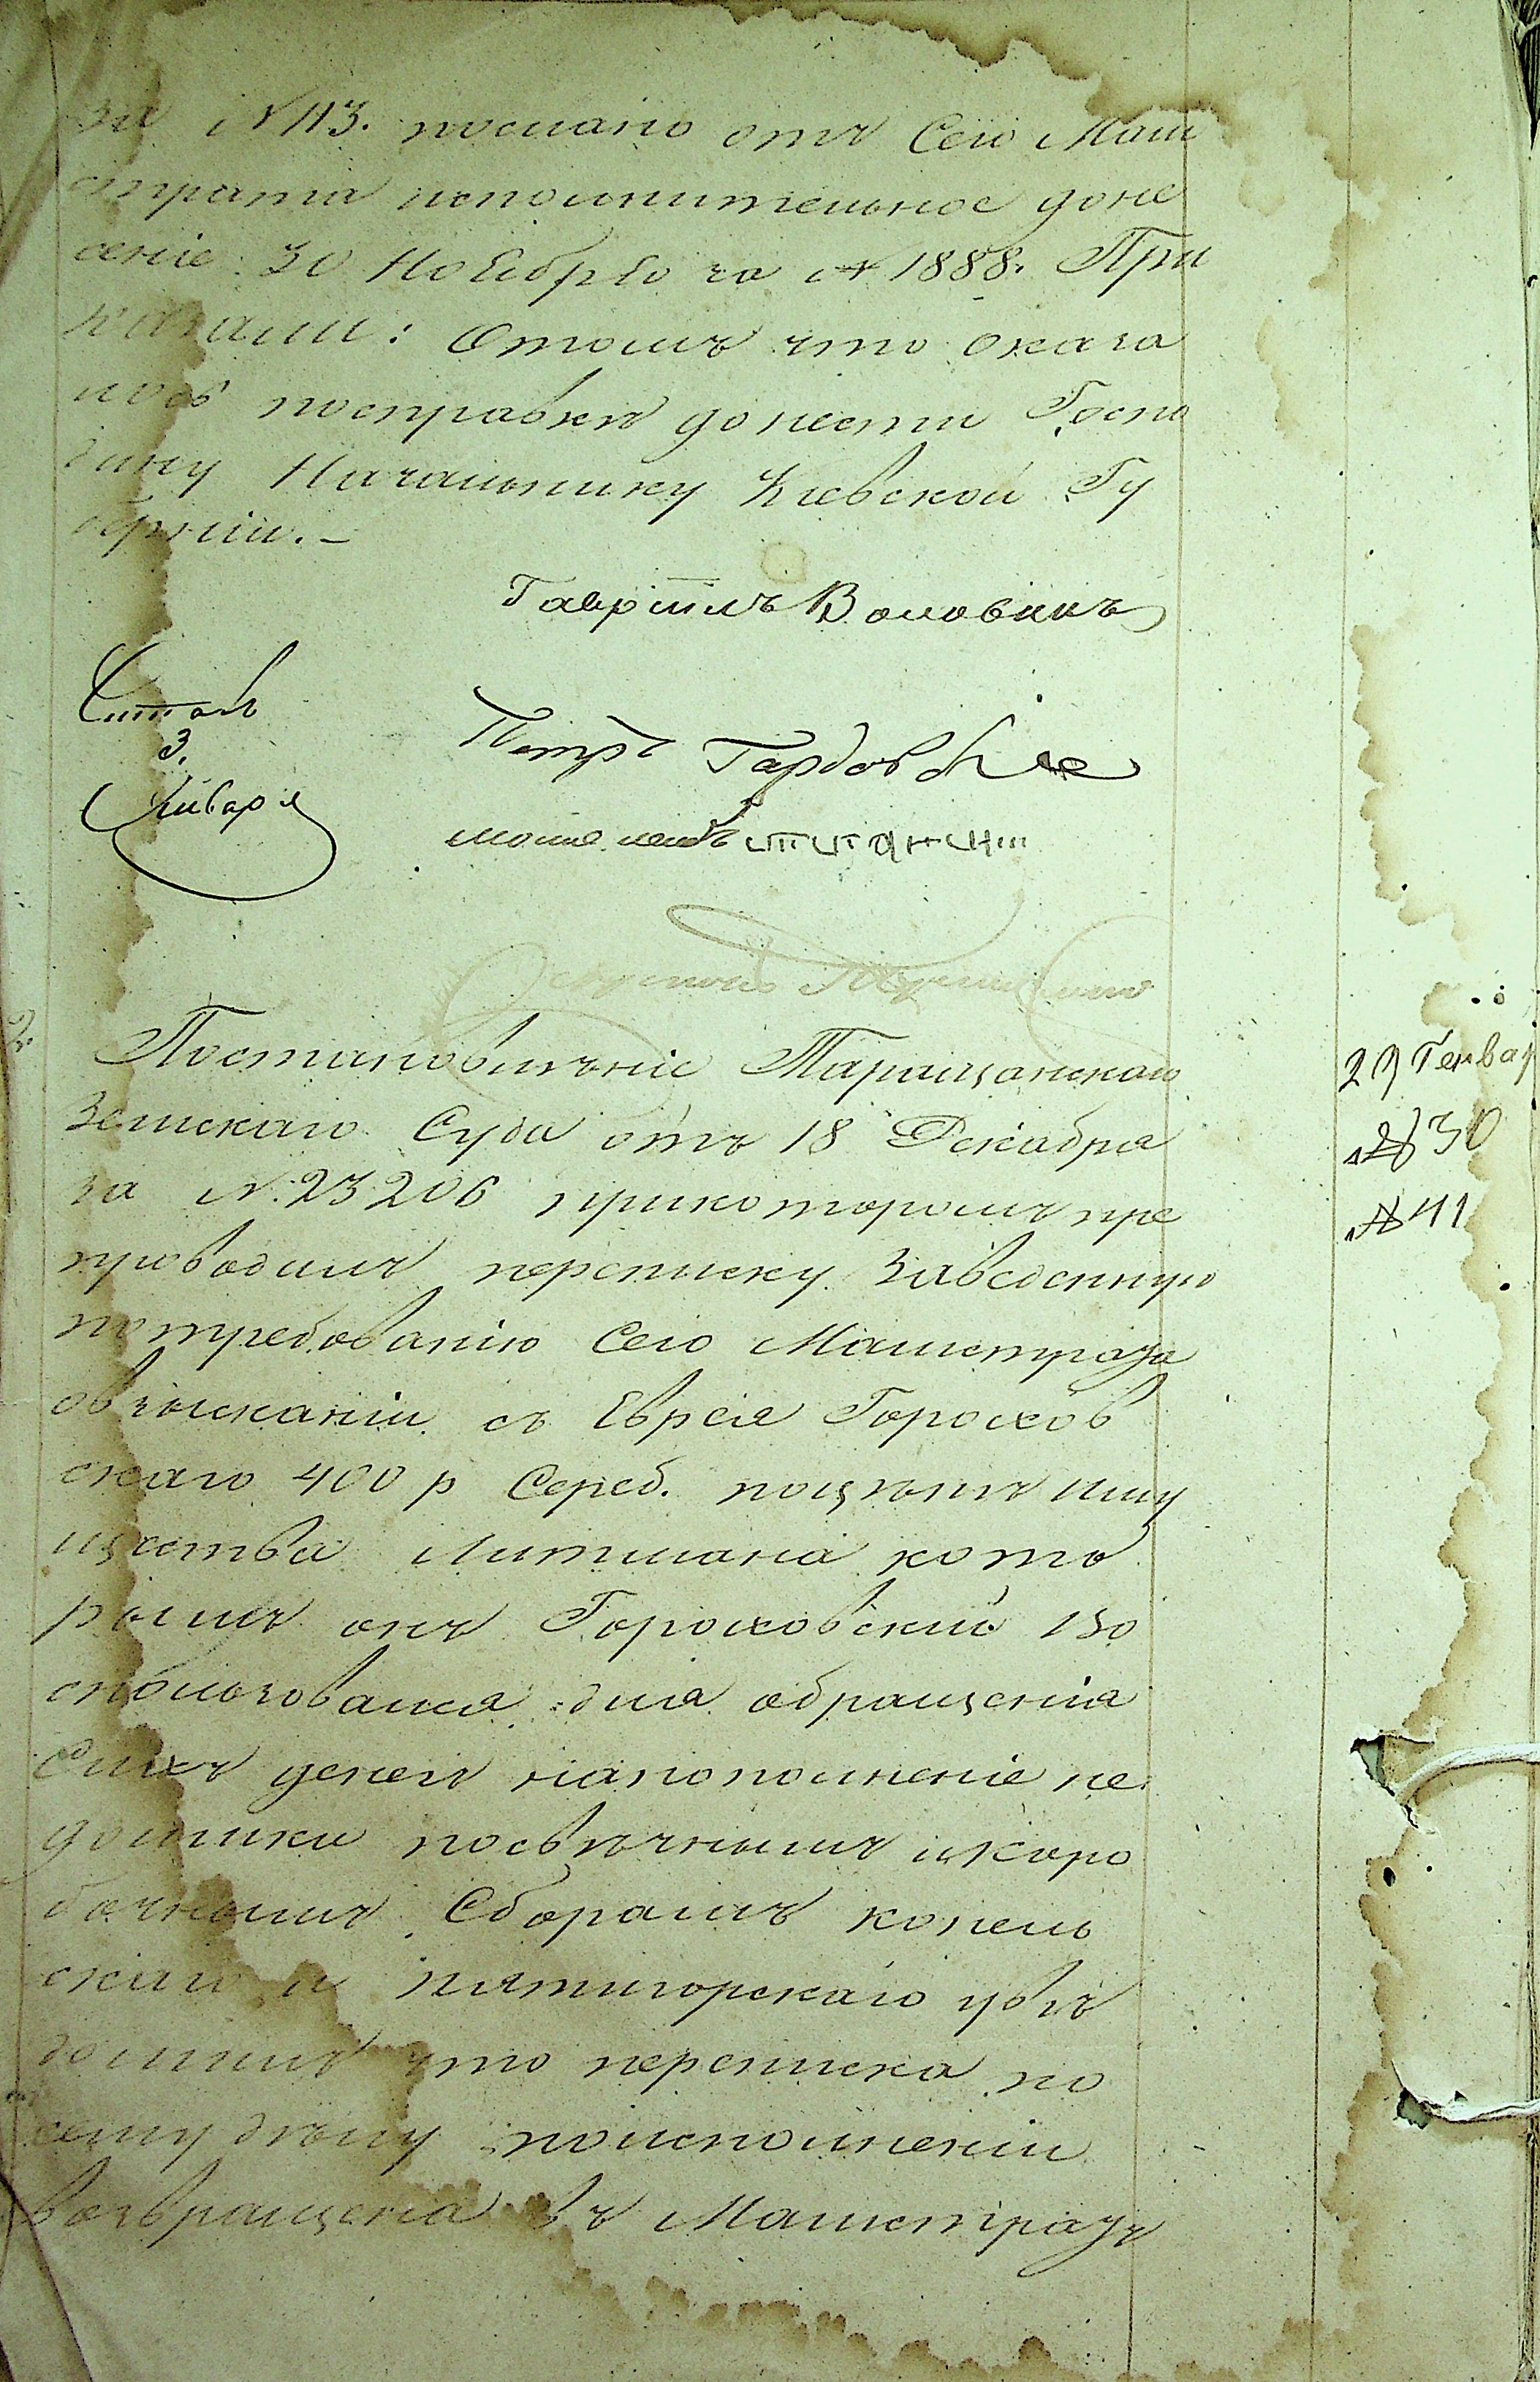 за №113. послано отъ Сего Маги
страта исполнительное доне
сеніе 30 Ноября за № 1888. При
казали: Отомъ что оказа
лось посправкѣ донести Госпо
дину Начальнику Кіевской Гу
берніи. –
Гавріилъ Воловикъ
Читалъ
3.
Января
Петръ
мошко лейбъ
2.
Постановленіе Таращанскаго
Земскаго Суда отъ 18 Декабря
за №. 23206 прикоторомъ пре
проводилъ переписку Заведенную
потребованію Сего Магистрата
овзысканіи съ Еврея Горохов
скаго 400 р Сереб. поцѣнѣ иму
щества Литмана кото
рымъ онъ Гороховскій во
спользовался для обращенія
Сихъ денегъ напополненіе не
доимки посвѣчнымъ икоро
бочнымъ Сборамъ конель
скаго и пятигорскаго увѣ
домить что переписка по
сему дѣлу поисполненіи
возвращена въ Магистратъ
29 Генвар
№ 30
№ 41